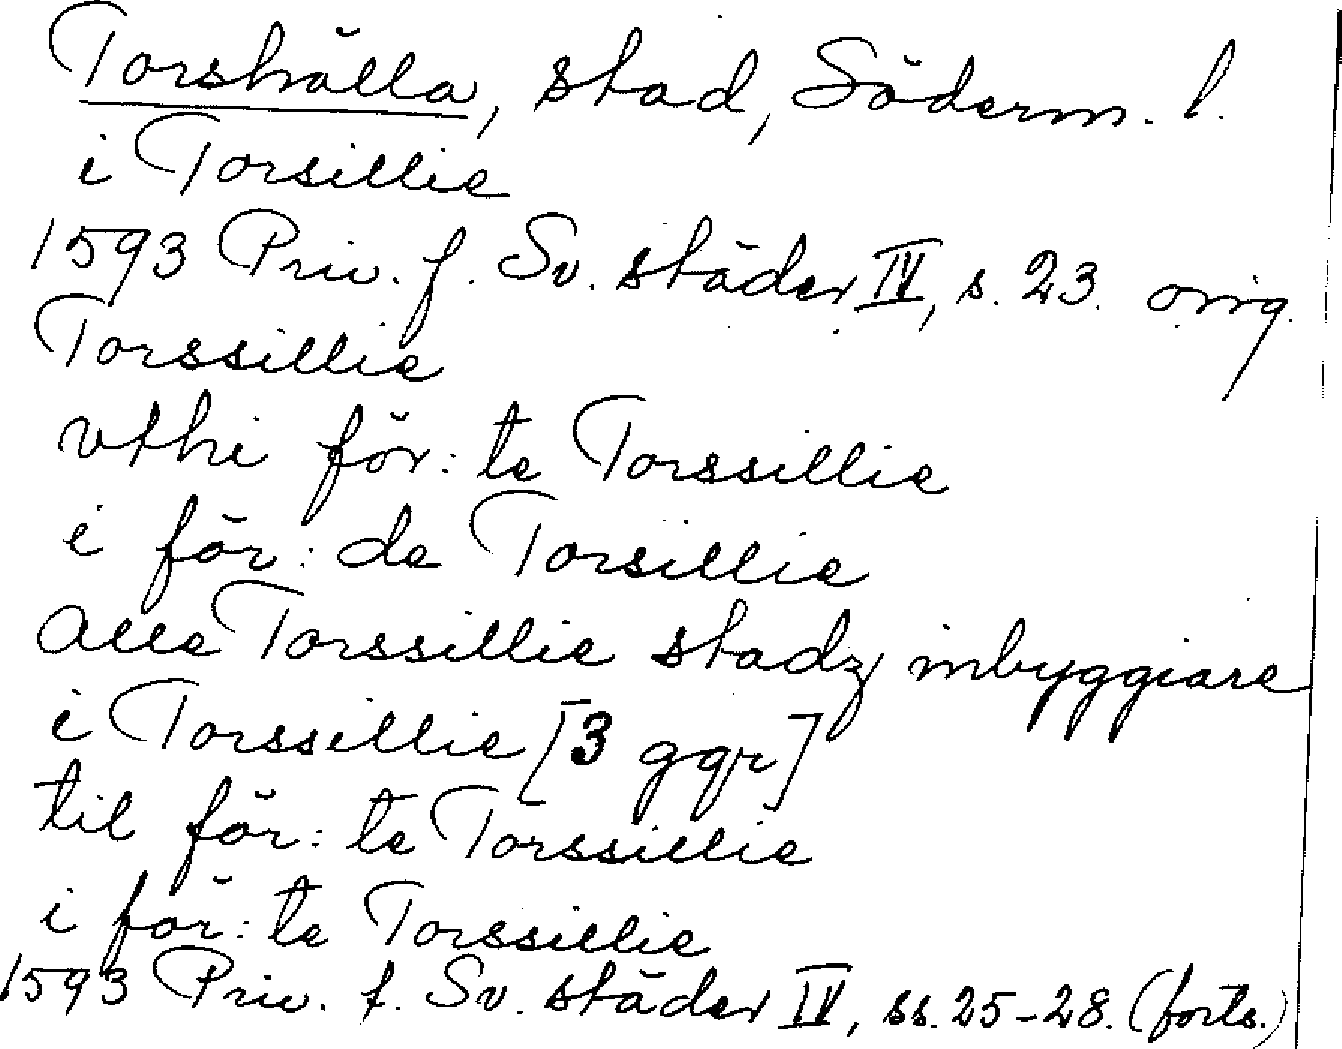 Torshälla, stad, Söderm. l.
i Torsillie
1593 Priv. f. Sv. städer IV, s. 23. orig.
Torssillie
vthi för:te Torssillie
i för:de Torsillie
alle Torssillie stadz inbyggiare
i Torssillie [3 ggr]
til för:te Torssillie
i för:te Torssillie
1593 Priv. f. Sv. städer IV, ss. 25-28. (forts.)